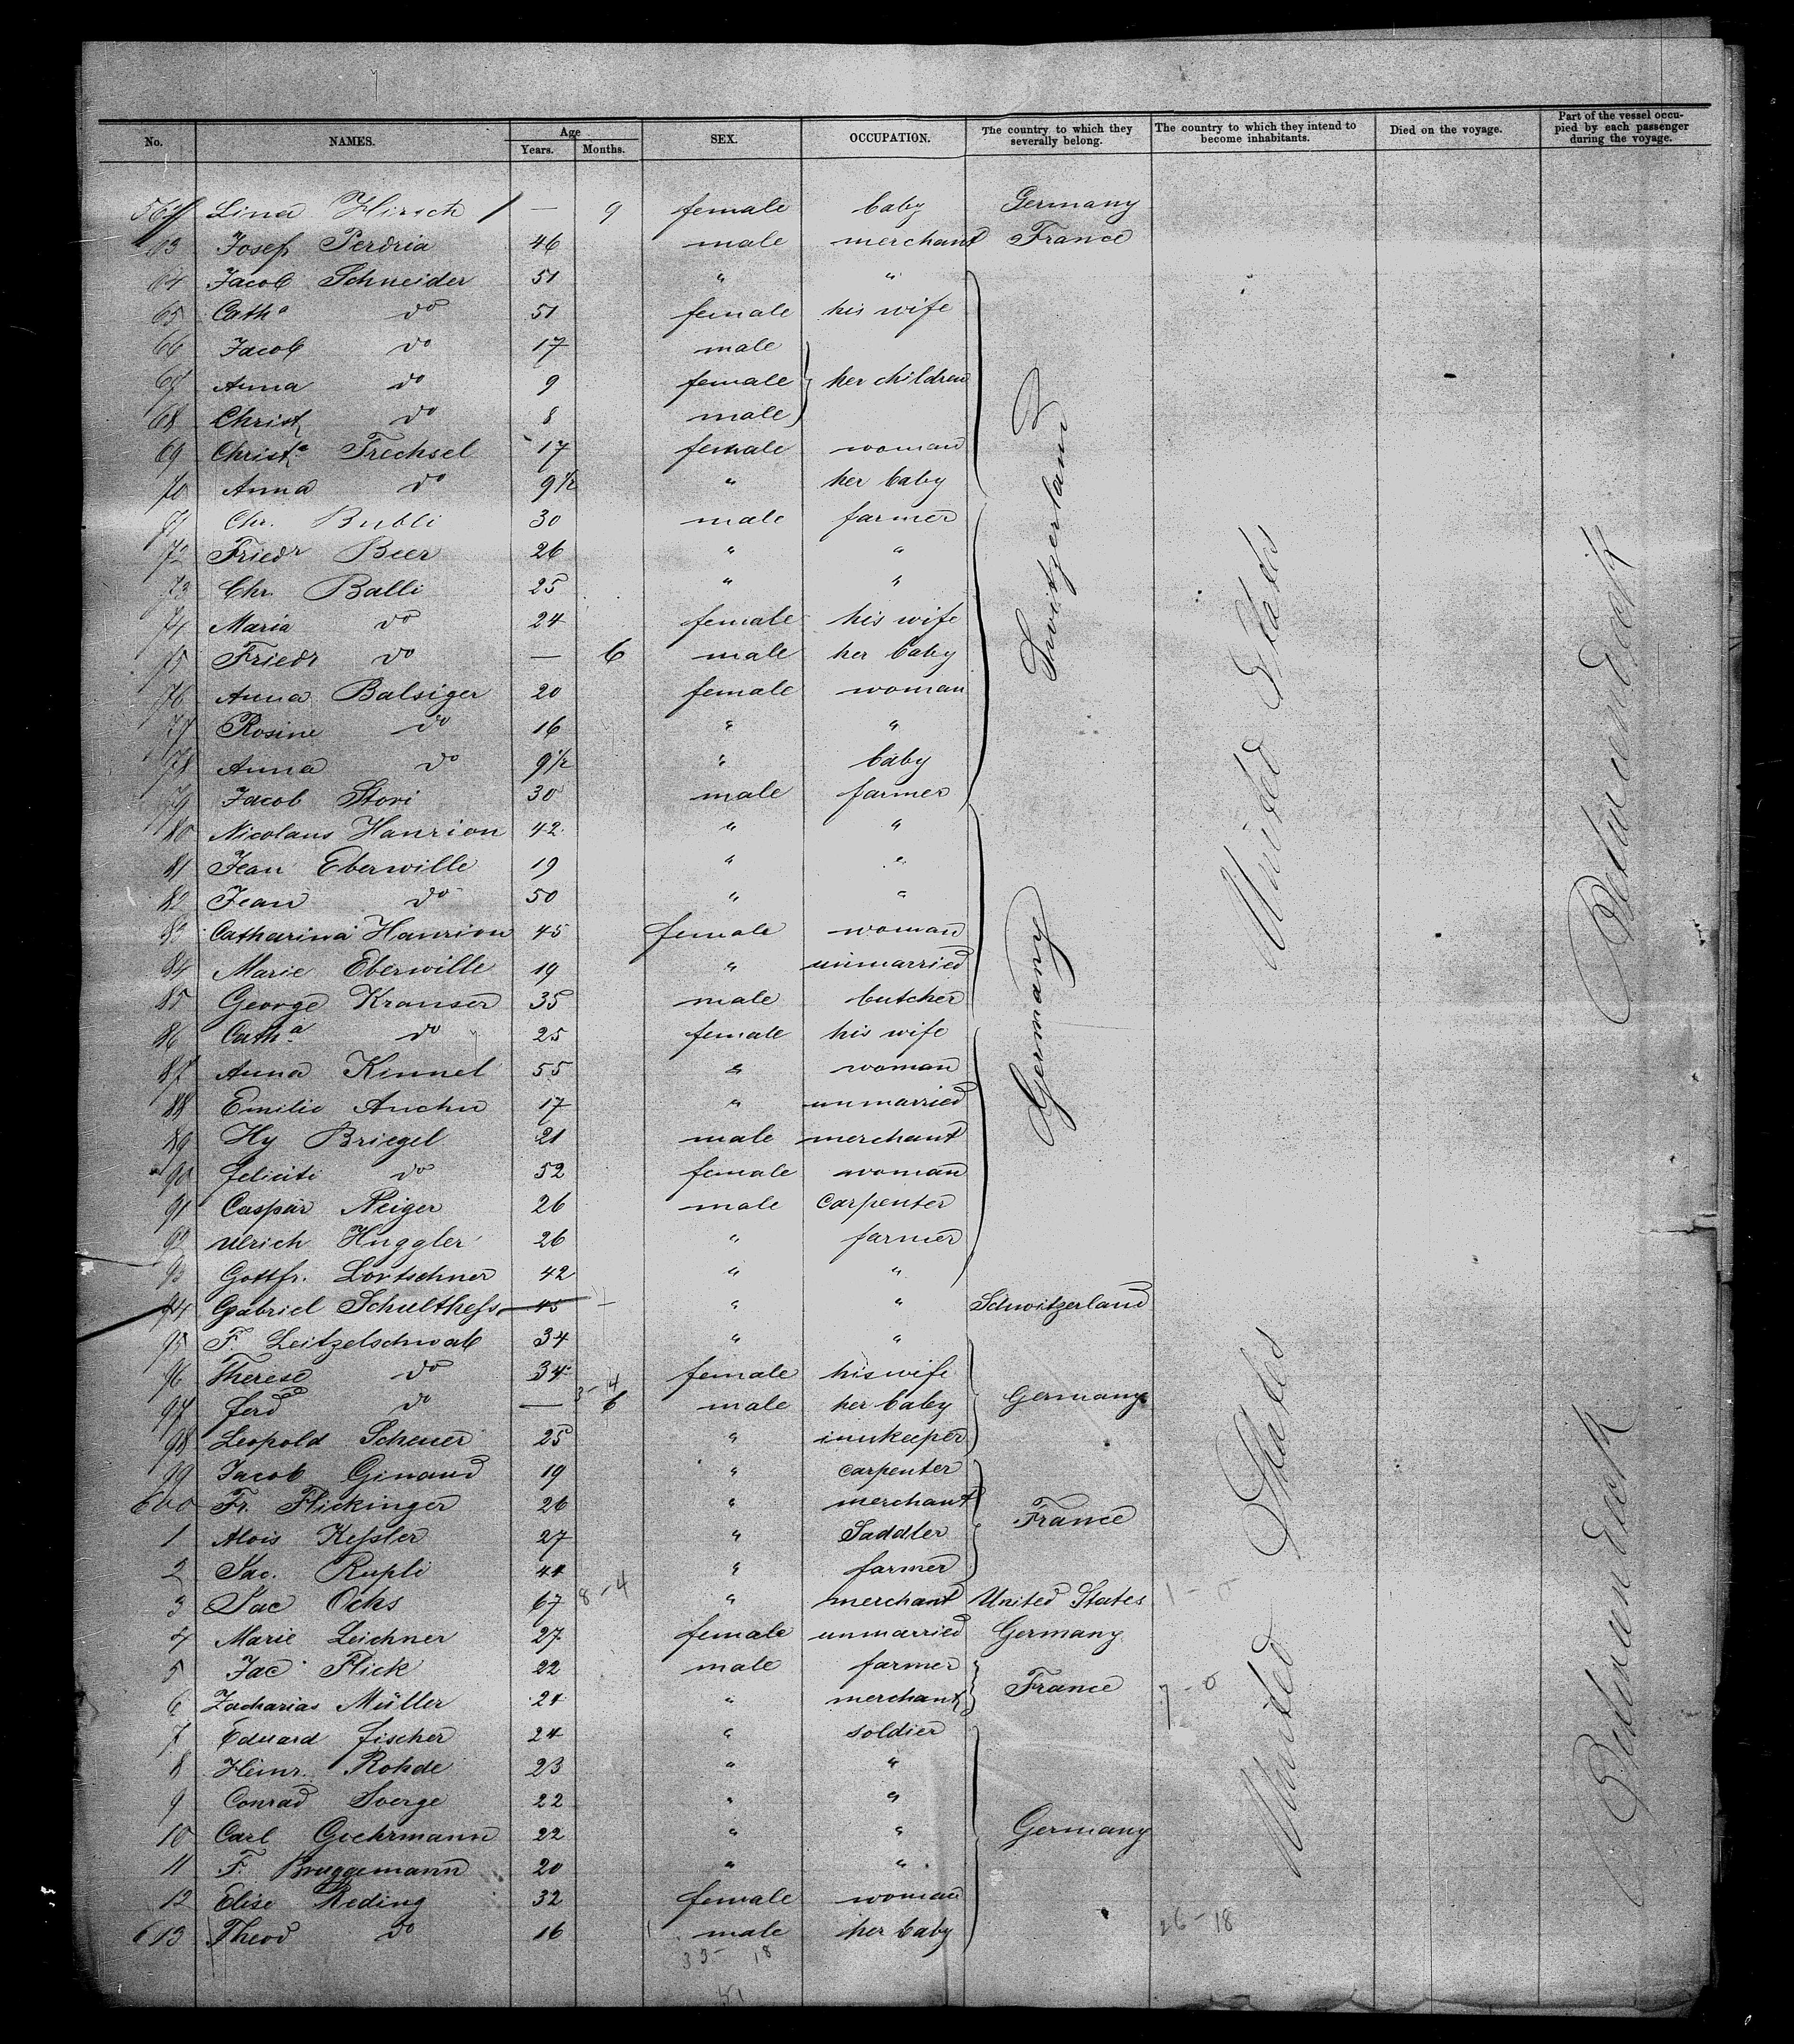 No. NAMES. Age Years. Months. SEX. OCCUPATION. The country to which they severally belong. The country to which they intend to become inhabitants. Died on the voyage. Part of the vessel occupied by each passenger during the voyage.
Lina Hirsch / — 9 female baby Germany
63 Josef Perdria 46 male merchant France
64 Jacob Schneider 51 " "
65 Cath.a do 51 female his wife
66 Jacob do 17 male
67 Anna do 9 female her children
68 Christ do 8 male
69 Christ.e Trechsel 17 female woman
70 Anna do 9½ " her baby
71 Chr. Bubli 30 male farmer
72 Friedr Beer 26 " "
73 Chr. Balli 25 " "
74 Maria do 24 female his wife
75 Friedr do — 6 male her baby
76 Anna Balsiger 20 female woman
77 Rosine do 16 " "
78 Anna do 9½ " baby
Switzerland
79 Jacob Stori 30 male farmer
80 Nicolaus Hanrion 42 " "
81 Jean Eberwille 19 " "
82 Jean do 50 " "
83 Catharina Hanrion 45 female woman
84 Marie Eberwille 19 " unmarried
85 George Kranser 35 male butcher
86 Cath.a do 25 female his wife
87 Anna Kinnel 55 " woman
88 Emilie Anchn 17 " unmarried
89 Hy Briegel 21 male merchant
90 feliciti do 52 female woman
91 Caspar Neiger 26 male carpenter
92 Ulrich Huggler 26 " farmer
93 Gottfr. Lortschner 42 " "
Germany
United States
Between Deck
94 Gabriel Schulthess 45 — " " Schwitzerland
95 F. Leitzelschwab 34 " "
96 Therese do 34 female his wife
3-4
97 ferd do — 6 male her baby Germany
98 Leopold Scheuer 25 " innkeeper
99 Jacob Ginaud 19 " carpenter
600 Fr. Flickinger 26 " merchant France
1 Alois Kessler 27 " Saddler
2 Jac. Rupli 44 " farmer
3 Jac Ochs 67 8-4 " merchant United States 1-0
4 Marie Leichner 27 female unmarried Germany
5 Jac Flick 22 male farmer
6 Zacharias Müller 24 " merchant France 7-0
7 Eduard fischer 24 " soldier
8 Heinr. Rohde 23 " "
9 Conrad Soerge 22 " "
10 Carl Goehrmann 22 " " Germany
11 F. Bruggemann 20 " "
12 Elise Reding 32 female woman
613 Theod do 16 male her baby 26-18
United States
Between Deck
33-18
51